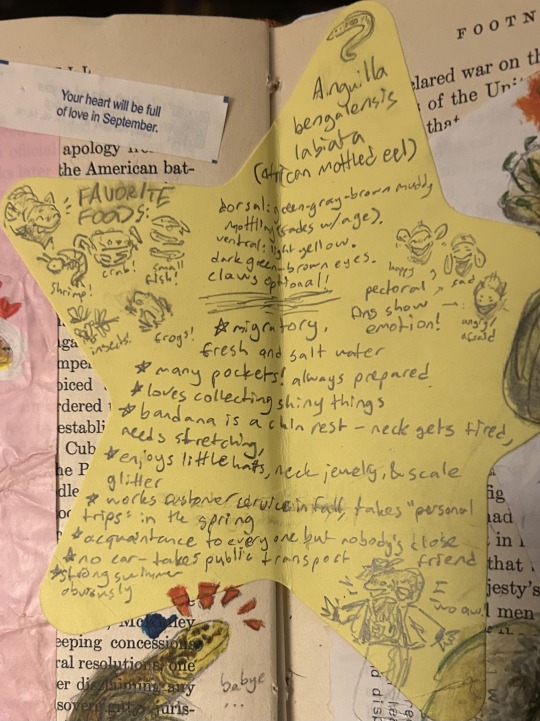 FOOTN
Your heart will be full
of love in September.
apology
the American bat-
clared war on th
of the Unit
that
Anguilla
bengalensis
labiata
(African mottled eel)
FAVORITE
FOODS:
shrimp!
crab!
small
fish!
insects!
frogs!
dorsal: green-gray-brown muddy
mottling (fades w/age).
ventral: light yellow.
dark green-brown eyes.
claws optional!
happy
sad
angry/
afraid
pectoral
fins show
emotion!
☆ migratory,
fresh and salt water
☆ many pockets! always prepared
☆ loves collecting shiny things
☆ bandana is a chin rest – neck gets tired,
needs stretching,
☆ enjoys little hats, neck jewelry, & scale
glitter
☆ works customer service in fall, takes "personal
trips" in the spring
☆ acquaintance to everyone but nobody's close
friend
☆ no car – takes public transport
☆ strong swimmer
obviously
babye
...
McKinley
eeping concessions
ral resolutions, one
er disclaiming any
sovereignty, juris-
jesty's
men